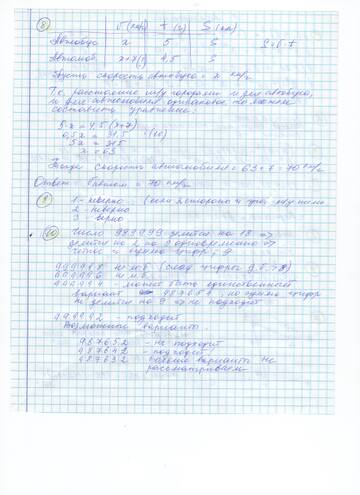 8 | v (км/ч) | t (ч) | S (км)
Автобус | x | 5 | S
Автомоб. | x+7 | 4,5 | S S=v·t
Пусть скорость автобуса = x км/ч
Т.к. расстояние м/у городами и для автобуса,
и для автомобиля одинаковое, то можем
составить уравнение:
5x = 4,5(x+7)
0,5x = 31,5 ·(10)
5x = 315
x = 63
Тогда скорость автомобиля = 63+7 = 70 км/ч
Ответ: = 70 км/ч
9 1 - неверно (если 2 стороны и угол м/у ними
2 - неверно
3 - верно
10 Число 999999 делится на 18 =>
делится на 2 и 9 одновременно =>
чётное и сумма цифр : 9
999998 (след. цифры 9, 6, 8)
999996
999994 - может быть единственный
вариант 987654, но сумма цифр
не делится на 9 => не подходит
999992 - подходит
Возможные варианты:
987652 - не подходит
987642 - подходит
987632 варианты не
рассматриваем